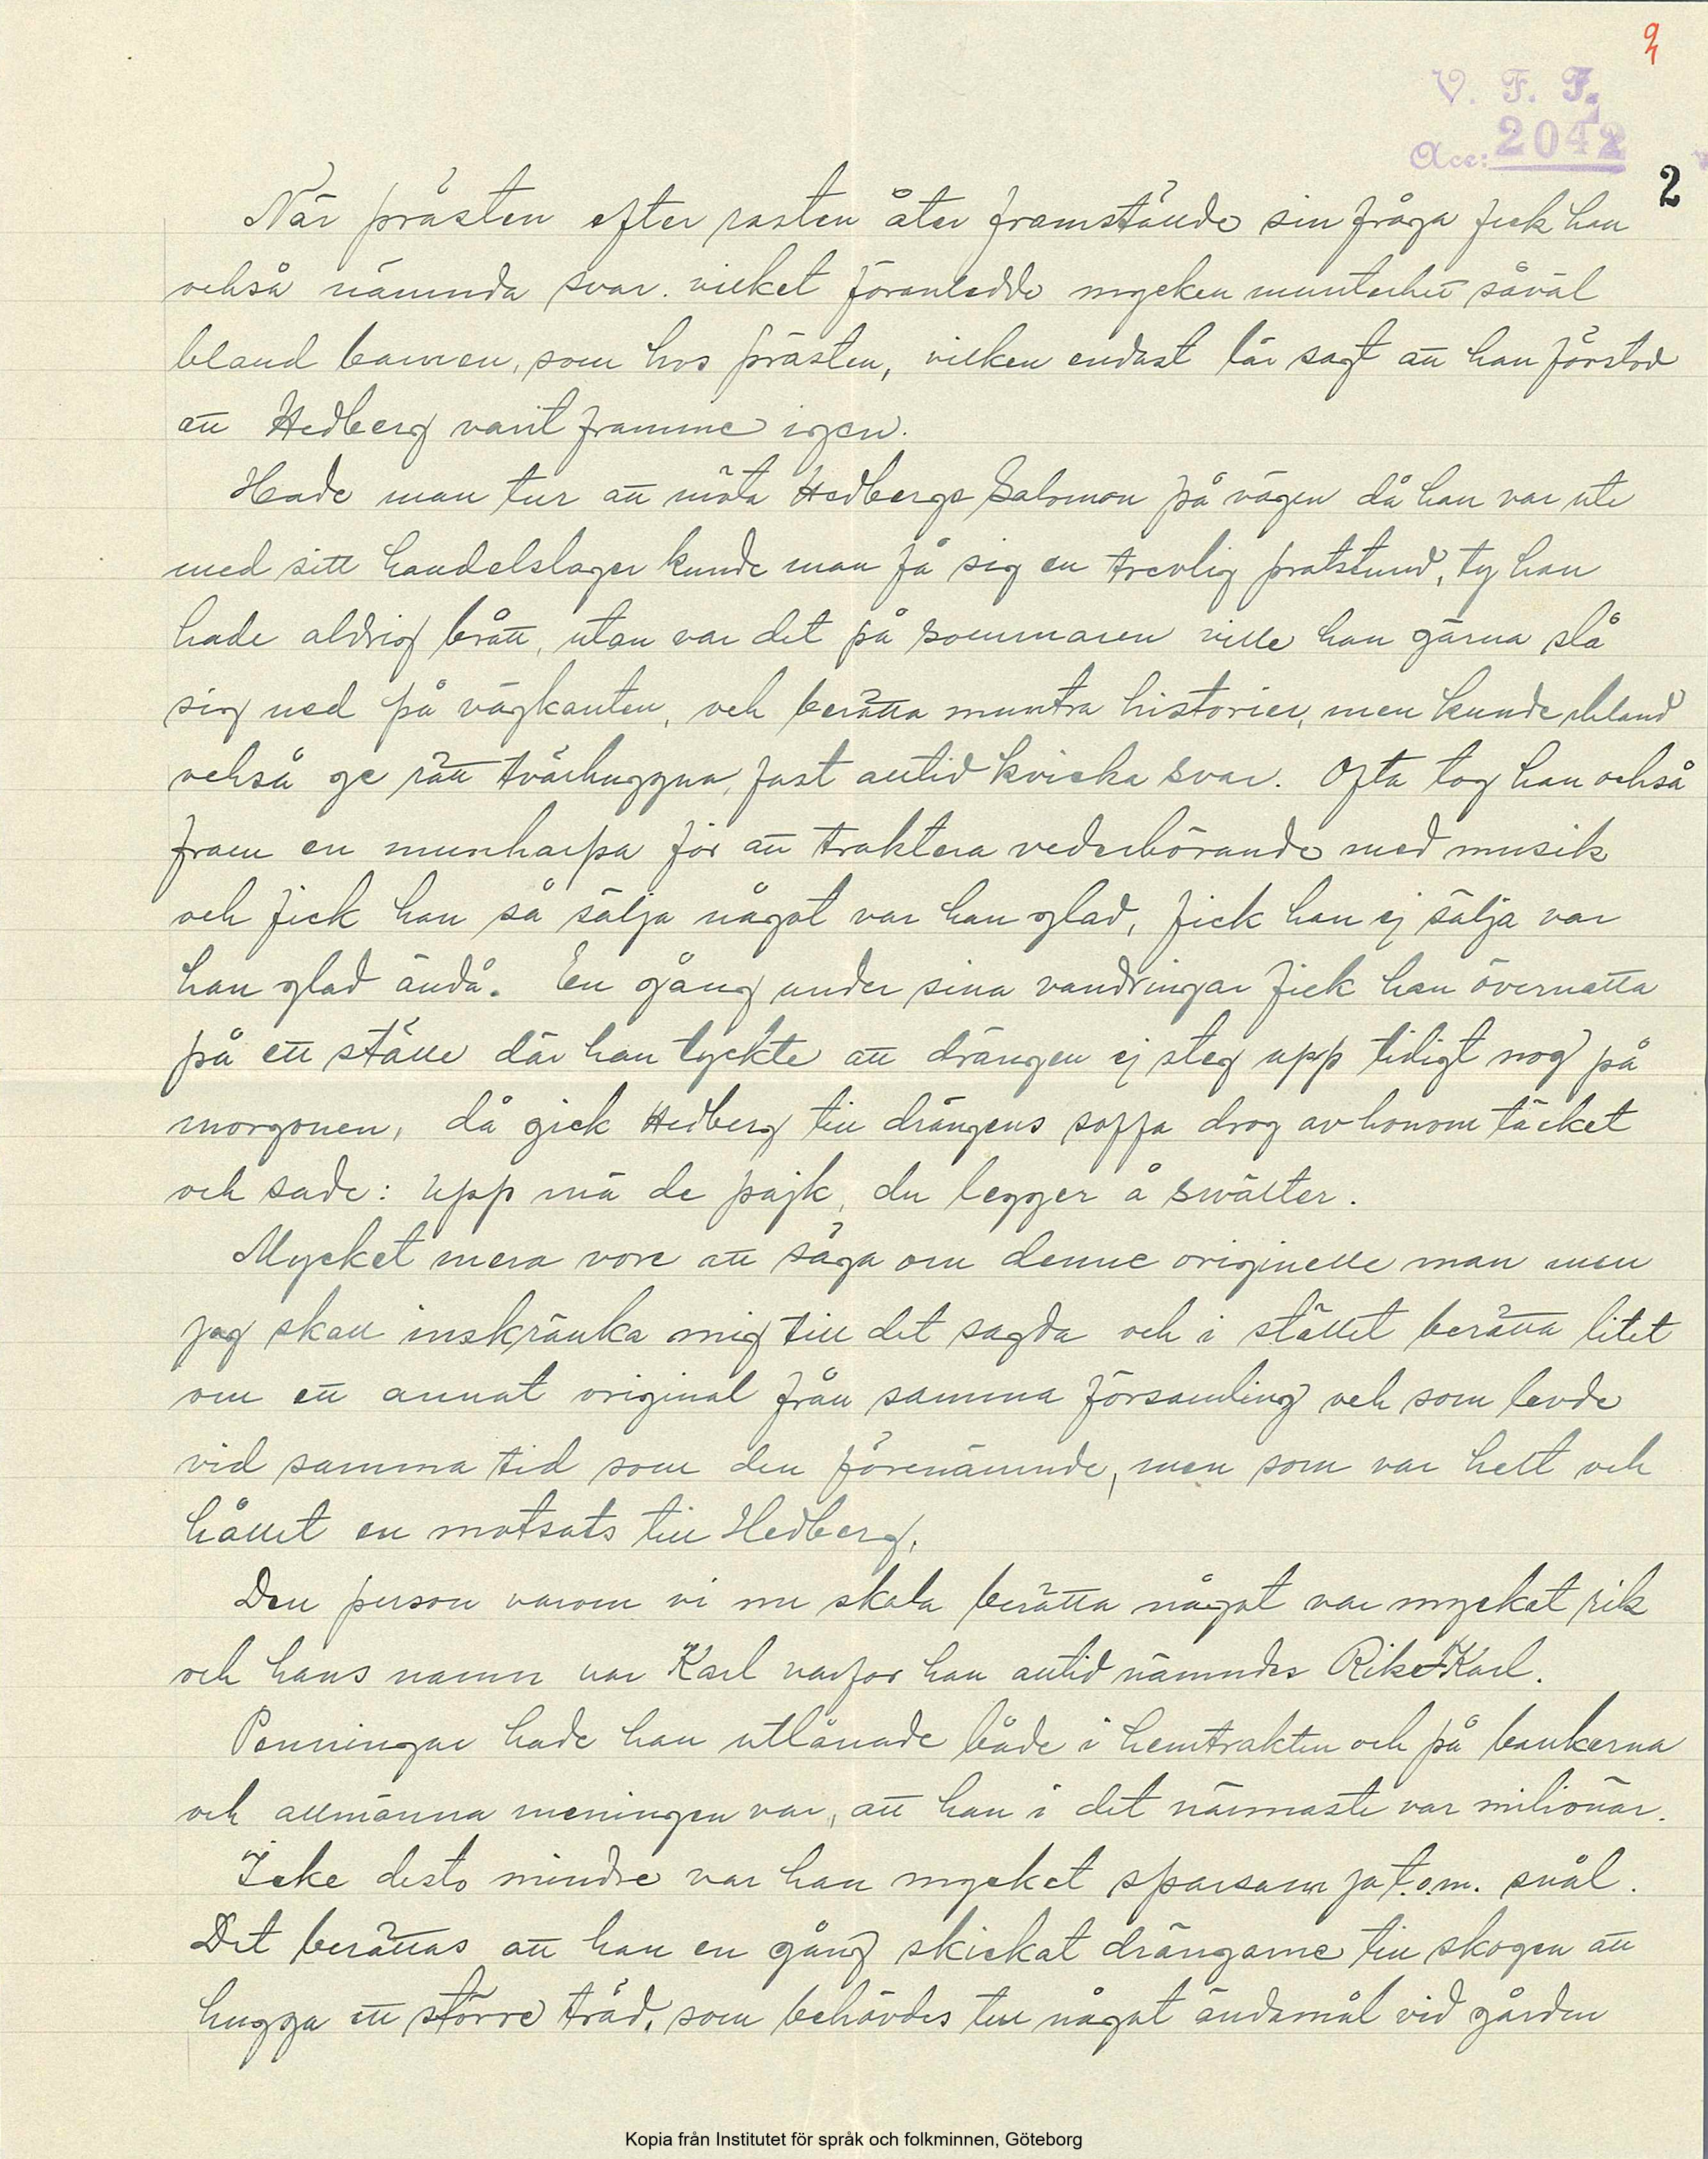 9
V. F. F.
Acc: 2042
2
När prästen efter rasten åter framställde sin fråga fick han
också nämnda svar. vilket föranledde mycken munterhet såväl
bland barnen, som hos prästen, vilken endast lär sagt att han förstod
att Hedberg varit framme igen.
Hade man tur att möta Hedbergs Salomon på vägen då han var ute
med sitt handelslager kunde man få sig en trevlig pratstund, ty han
hade aldrig brått, utan var det på sommaren ville han gärna slå
sig ned på vägkanten, och berätta muntra historier, men kunde ibland
också ge rätt tvärhuggna, fast alltid kvicka svar. Ofta tog han också
fram en munharpa för att traktera vederbörande med musik
och fick han så sälja något var han glad, fick han ej sälja var
han glad ändå. En gång under sina vandringar fick han övernatta
på ett ställe där han tyckte att drängen ej steg upp tidigt nog på
morgonen, då gick Hedberg till drängens soffa drog av honom täcket
och sade: upp mä de pajk, du legger å swälter.
Mycket mera vore att säga om denne originelle man men
jag skall inskränka mig till det sagda och i stället berätta litet
om ett annat original från samma församling och som levde
vid samma tid som den förenämnde, men som var helt och
hållet en motsats till Hedberg.
Den person varom vi nu skola berätta något var mycket rik
och hans namn var Karl varför han alltid nämndes Rike-Karl.
Penningar hade han utlånade både i hemtrakten och på bankerna
och allmänna meningen var, att han i det närmaste var miliönär.
Icke desto mindre var han mycket sparsam ja t.o.m. snål.
Det berättas att han en gång skickat drängarne till skogen att
hugga ett större träd, som behövdes till något ändamål vid gården
Kopia från Institutet för språk och folkminnen, Göteborg